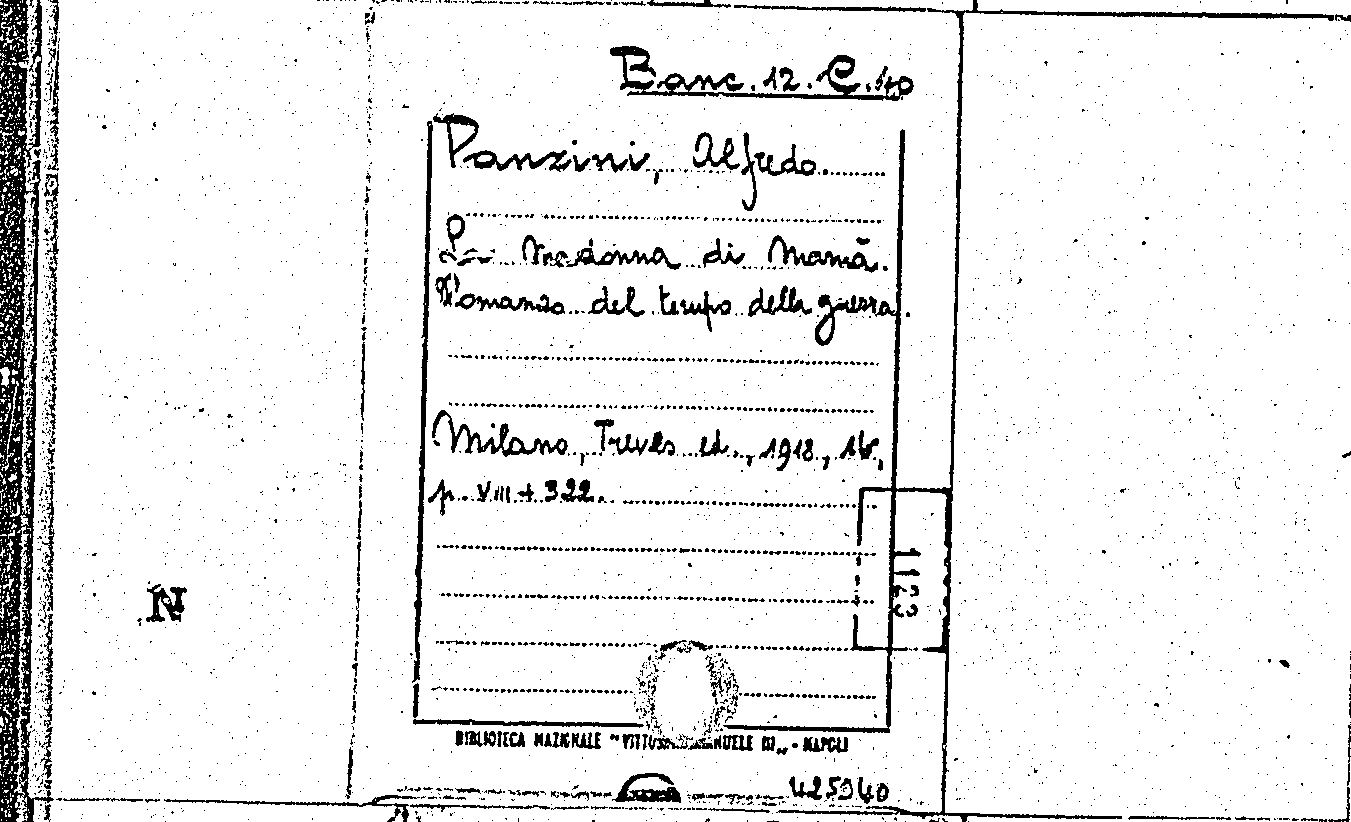 Banc. 12. C. 40
Panzini, Alfredo.
La Madonna di Mamà.
Romanzo del tempo della guerra.
Milano, Treves ed., 1918, 16°,
p. VIII + 322.
1123
N
BIBLIOTECA NAZIONALE "VITTORIO EMANUELE III„ - NAPOLI
425940